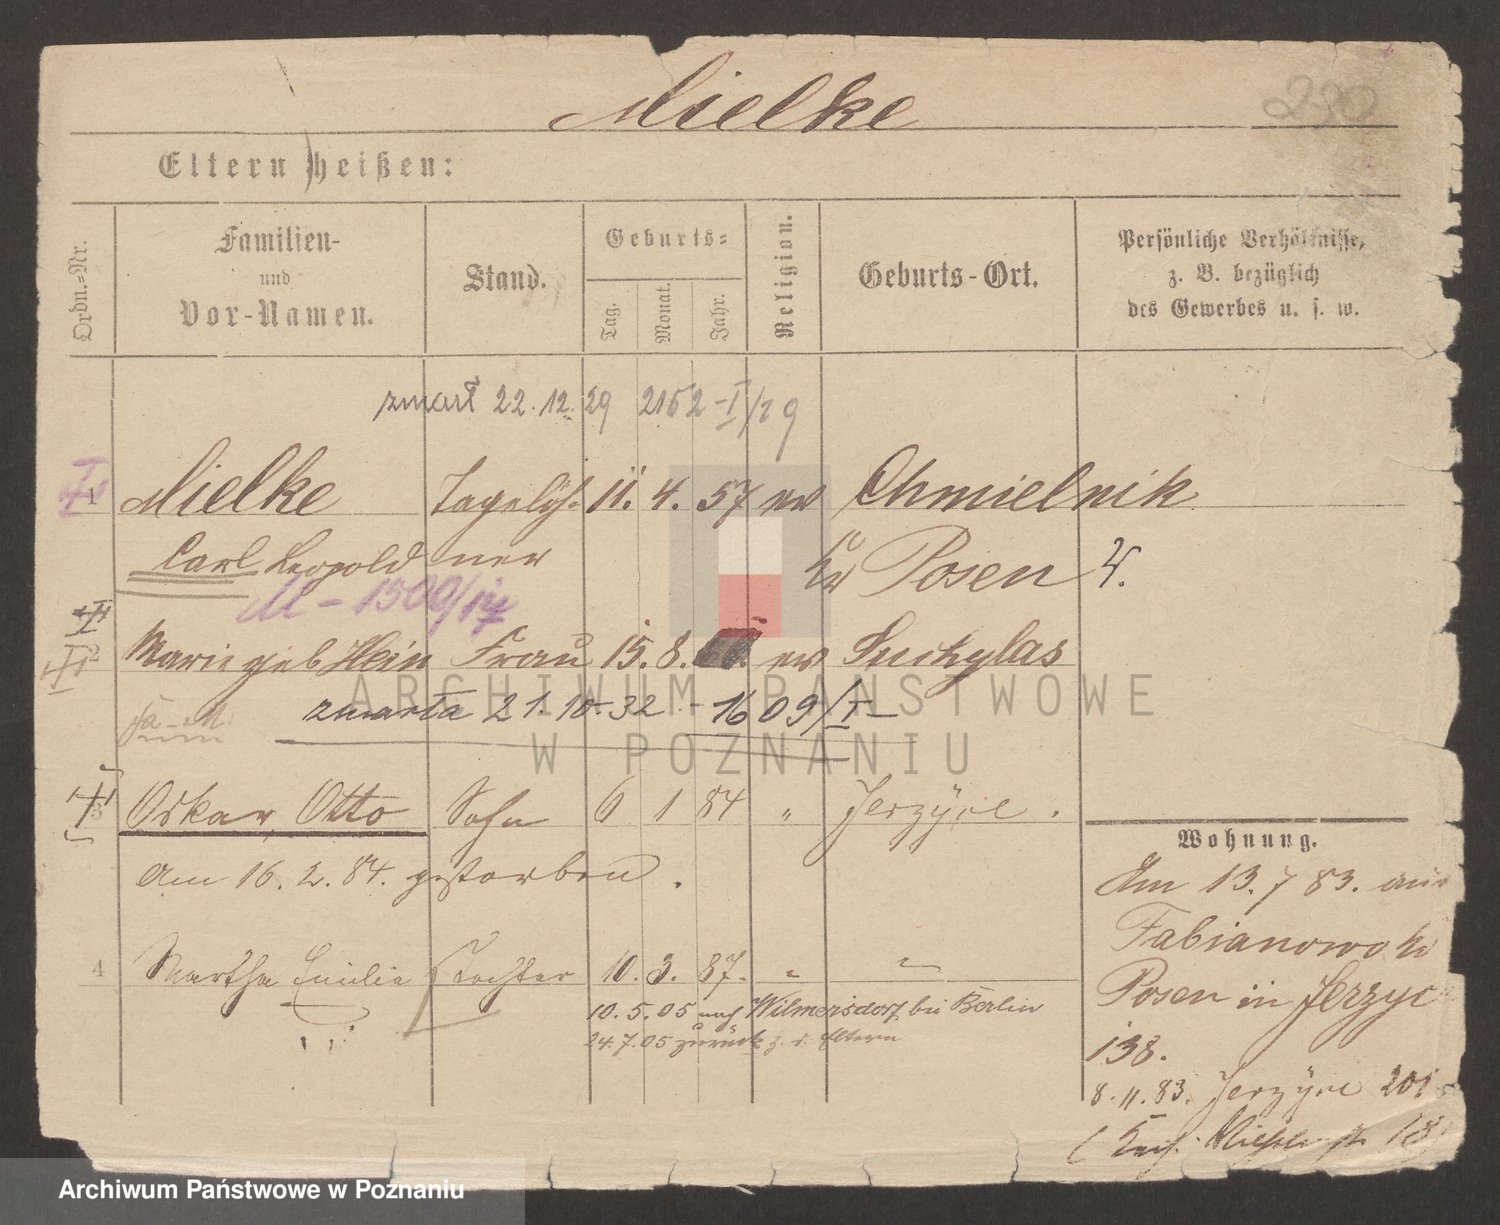 Mielke
230
Eltern heißen:
Ordn.-Nr.
Familien-
und
Vor-Namen.
Stand.
Geburts-
Tag.
Monat.
Jahr.
Religion.
Geburts-Ort.
Persönliche Verhältnisse,
z. B. bezüglich
des Gewerbes u. s. w.
zmarł 22. 12. 29 2152 - I/29
1 Mielke Tagelöh- 11. 4. 57 ev Chmielnik
Carl Leopold ner Kr Posen
M - 1500/
2 Marie geb Hein Frau 15. 8. ev Suchylas
zmarła 21. 10. 32 - 1609/I
ARCHIWUM PAŃSTWOWE
W POZNANIU
3 Oskar, Otto Sohn 6 1 84 " Jerzyce.
Am 16. 2. 84. gestorben.
4 Martha Emilie Tochter 10. 3. 87. " "
10. 5. 05 nach Wilmersdorf bei Berlin
24. 7. 05 zurück z. d. Eltern
Wohnung.
Am 13. 7 83. aus
Fabianowo Kr
Posen in Jerzyc
138.
8. 11. 83. Jerzyce 201
18)
Archiwum Państwowe w Poznaniu